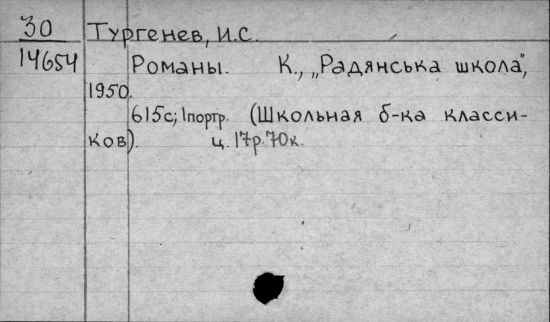 30 Тургенев, И.С.
14654 Романы. К., „Радянська школа",
1950.
615с; 1портр. (Школьная б-ка класси-
ков). ц. 17р. 70к.